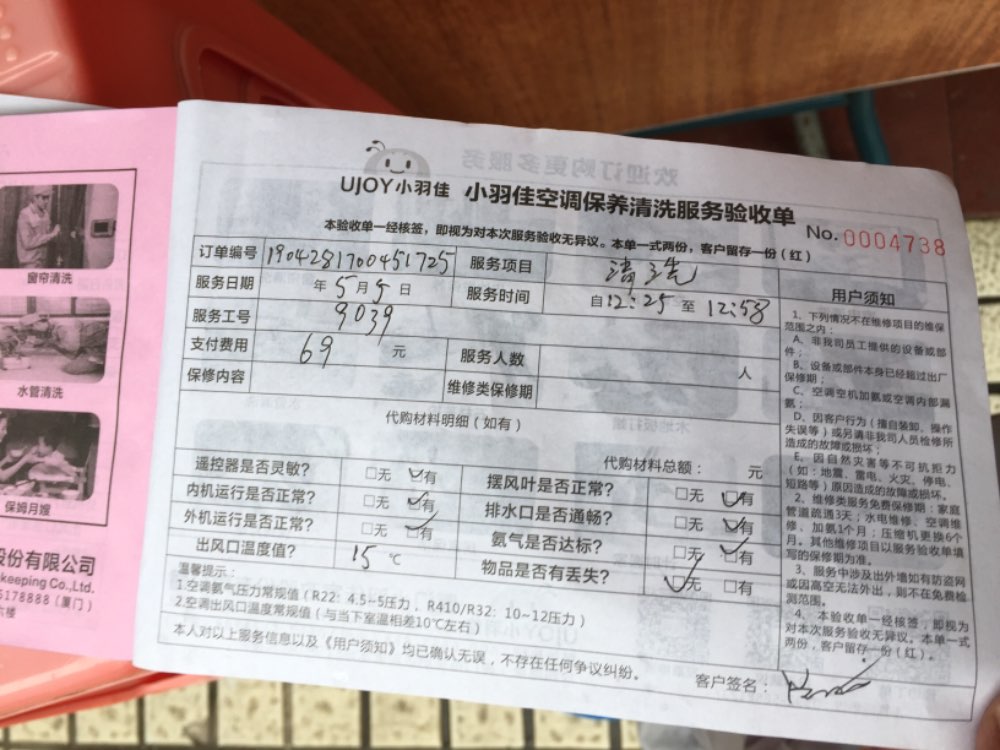 窗帘清洗
水管清洗
保姆月嫂
股份有限公司
keeping Co.,Ltd.
5178888（厦门）
六楼
欢迎订购更多服务
UJOY小羽佳 小羽佳空调保养清洗服务验收单
No. 0004738
本验收单一经核签，即视为对本次服务验收无异议。本单一式两份，客户留存一份（红）
订单编号 1904281700451725 服务项目 清洗
服务日期 年5月5日 服务时间 自12:25至12:58
服务工号 9039
支付费用 69 元 服务人数 人
保修内容 维修类保修期
代购材料明细（如有）
代购材料总额： 元
遥控器是否灵敏？ □无 □有 摆风叶是否正常？ □无 □有
内机运行是否正常？ □无 □有 排水口是否通畅？ □无 □有
外机运行是否正常？ □无 □有 氨气是否达标？ □无 □有
出风口温度值？ 15 ℃ 物品是否有丢失？ □无 □有
温馨提示：
1.空调氨气压力常规值（R22：4.5~5压力，R410/R32：10~12压力）
2.空调出风口温度常规值（与当下室温相差10℃左右）
本人对以上服务信息以及《用户须知》均已确认无误，不存在任何争议纠纷。
客户签名：
用户须知
1、下列情况不在维修项目的维保
范围之内：
A、非我司员工提供的设备或部
件；
B、设备或部件本身已经超过出厂
保修期；
C、空调空机加氨或空调内部漏
氨；
D、因客户行为（擅自装卸、操作
失误等）或另请非我司人员检修所
造成的故障或损坏；
E、因自然灾害等不可抗拒力
（如：地震、雷电、火灾、停电、
短路等）原因造成的故障或损坏。
2、维修类服务免费保修期：家庭
管道疏通3天；水电维修、空调维
修、加氨1个月；压缩机更换6个
月。其他维修项目以服务验收单填
写的保修期为准。
3、服务中涉及出外墙如有防盗网
或因高空无法外出，则不在免费检
测范围。
4、本验收单一经核签，即视为
对本次服务验收无异议。本单一式
两份，客户留存一份（红）。